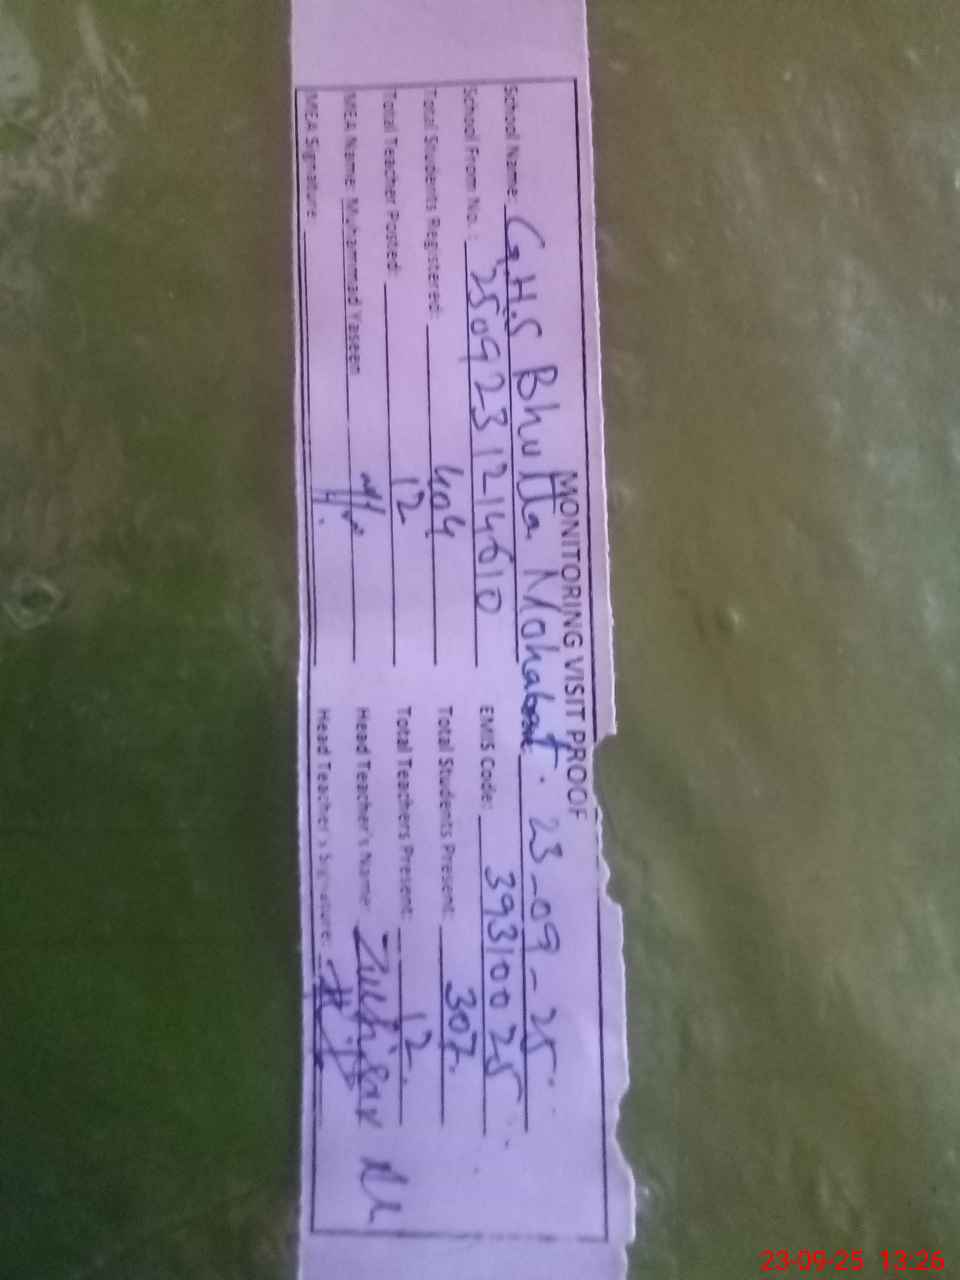 MONITORING VISIT PROOF
School Name: G.H.S Bhutta Mohabat. 23-09-25
School From No.: 2509231214610 EMIS Code: 39310025
Total Students Registered: 404 Total Students Present: 307
Total Teacher Posted: 12 Total Teachers Present: 12
MEA Name: Muhammad Yaseen Head Teacher's Name: Zulfiqar Ali
MEA Signature: Head Teacher's Signature:
23-09-25 13:26